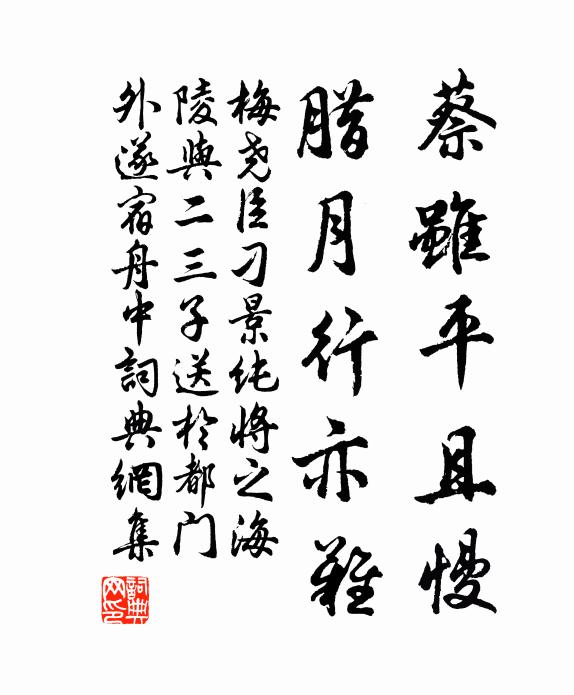 蔡雖平且慢
腊月行亦難
梅尧臣刁景纯將之海
陵與二三子送於都门
外遂宿舟中詞典網集
詞典
网印